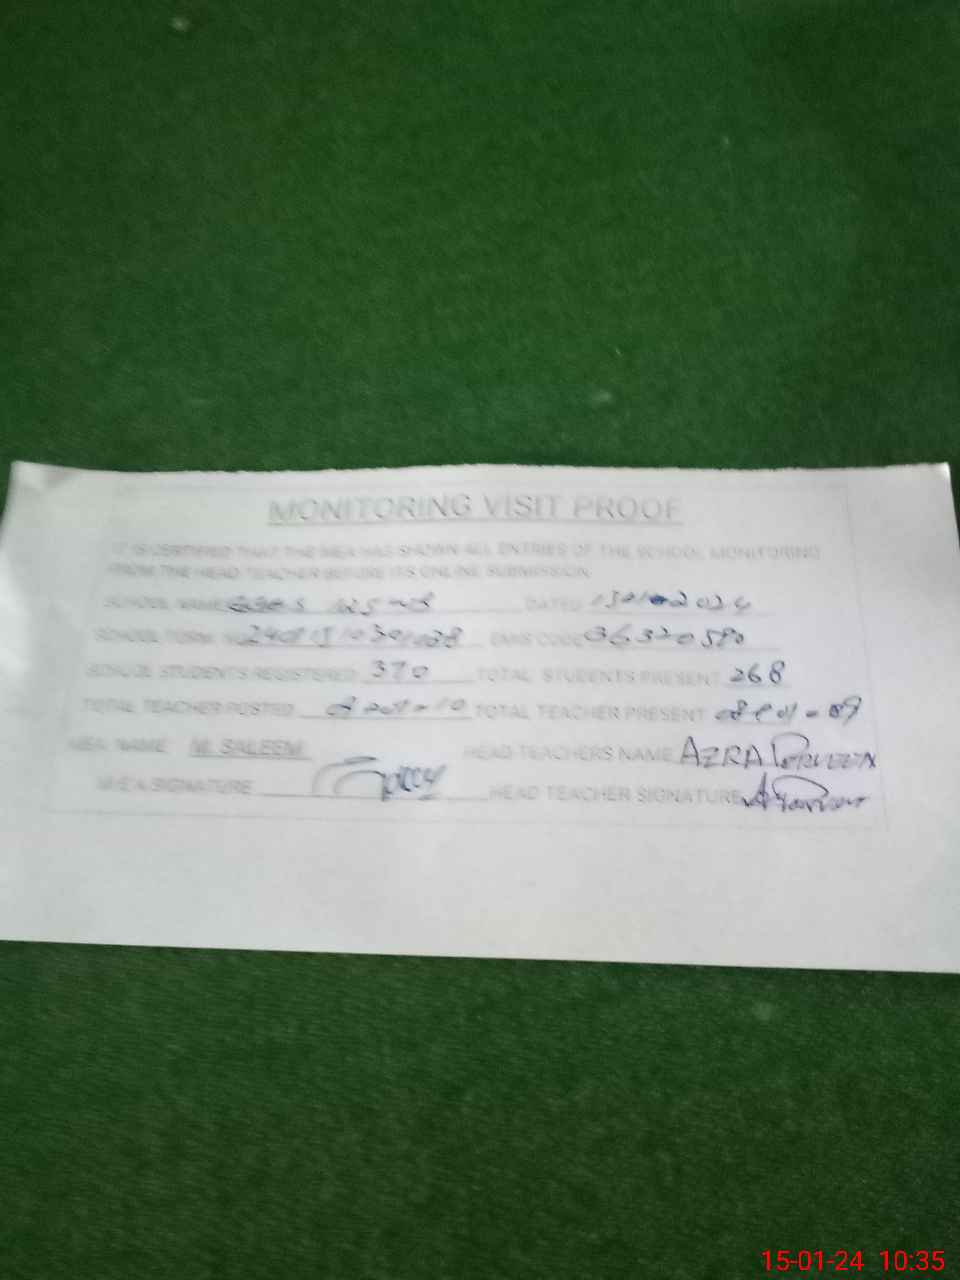 MONITORING VISIT PROOF
IT IS CERTIFIED THAT THE MEA HAS SHOWN ALL ENTRIES OF THE SCHOOL MONITORING
FROM THE HEAD TEACHER BEFORE ITS ONLINE SUBMISSION
SCHOOL NAME DATED
SCHOOL FORM EMIS CODE 36320580
SCHOOL STUDENTS REGISTERED 370 TOTAL STUDENTS PRESENT 268
TOTAL TEACHER POSTED TOTAL TEACHER PRESENT
MEA NAME M. SALEEM HEAD TEACHERS NAME AZRA PERVEEN
MEA SIGNATURE HEAD TEACHER SIGNATURE
15-01-24 10:35